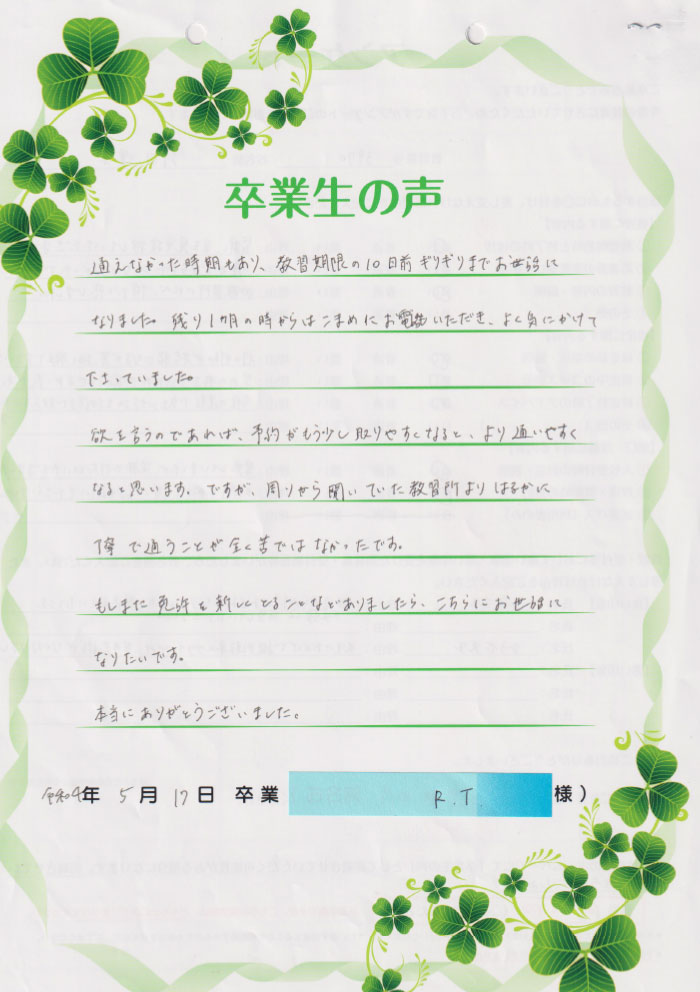 卒業生の声
通えなかった時期もあり、教習期限の10日前ギリギリまでお世話に
なりました。残り1ヶ月の時からはこまめにお電話いただき、よく気にかけて
下さっていました。
欲を言うのであれば、予約がもう少し取りやすくなると、より通いやすく
なると思います。ですが、周りから聞いていた教習所よりはるかに
丁寧で通うことが全く苦ではなかったです。
もしまた免許を新しくとることなどありましたら、こちらにお世話に
なりたいです。
本当にありがとうございました。
令和4年 5月 17日 卒業 R.T. 様)